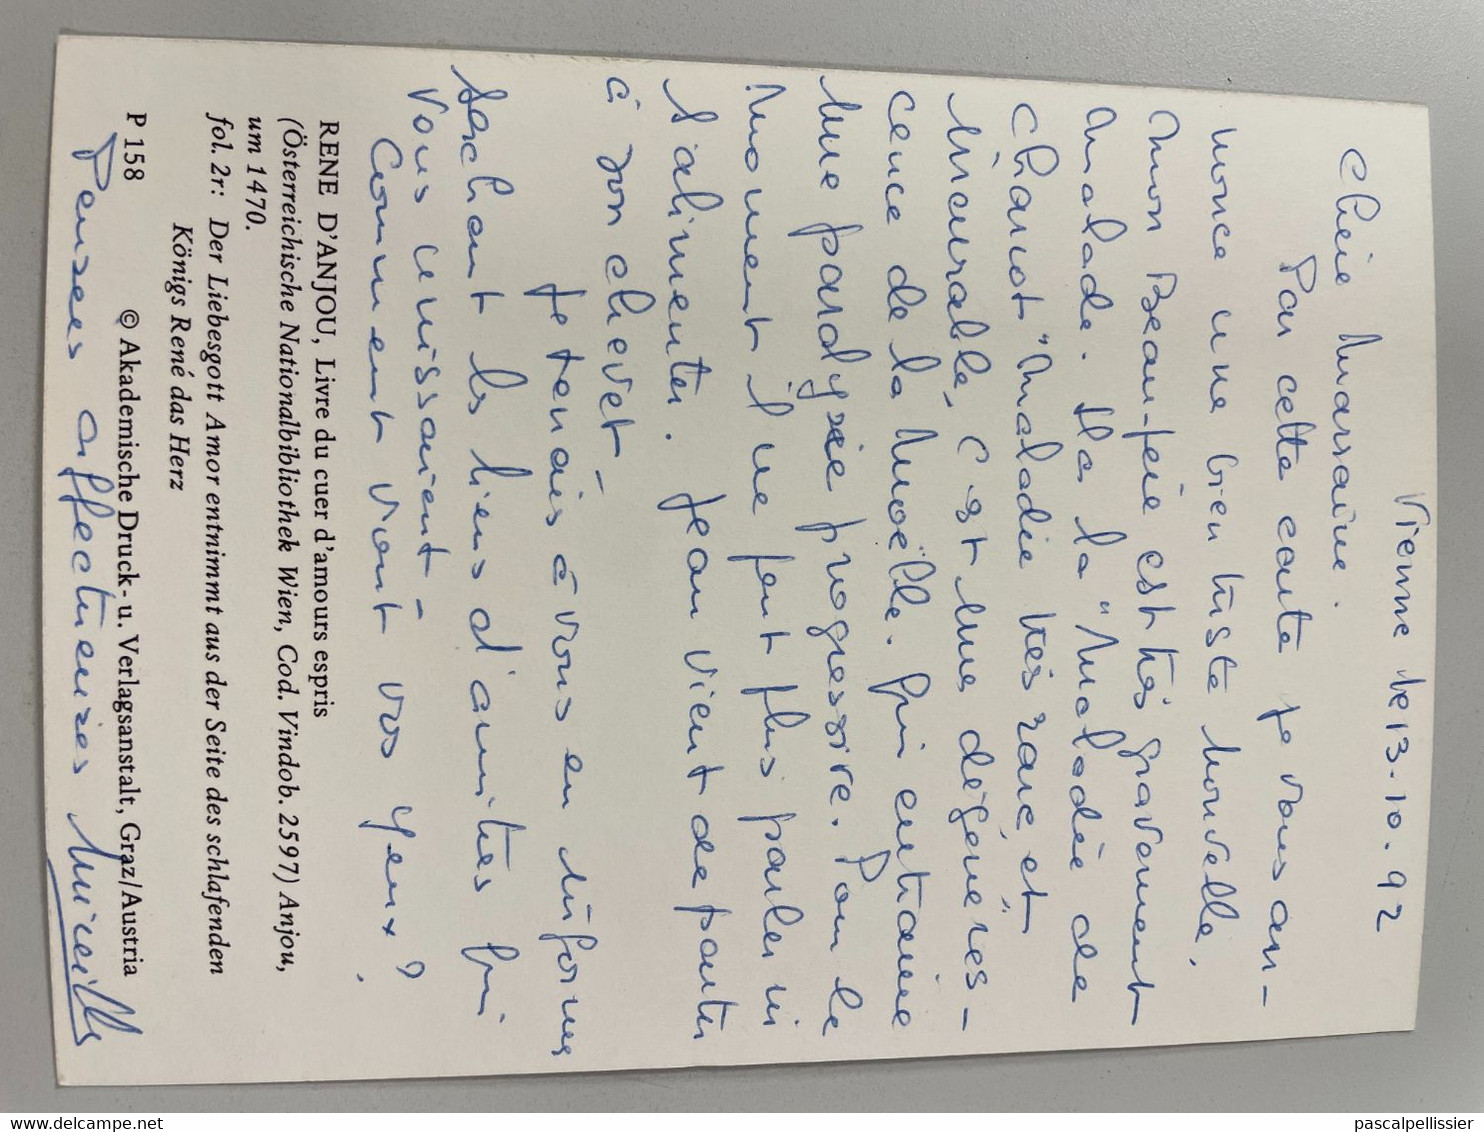 Vienne le 13.10.92
Chère Marraine.
Par cette carte je vous an-
nonce une bien triste nouvelle.
Mon Beau-père est très gravement
malade. Il a la "Maladie de
Charcot" Maladie très rare, et
incurable, c'est une dégénéres-
cence de la Moëlle. Qui entraine
une paralysie progressive. Pour le
moment il ne peut plus parler ni
s'alimenter. Jean vient de partir
à son chevet-
Je tenais à vous en informer
sachant les liens d'amitiés qui
vous unissaient-
Comment vont vos yeux?
RENE D'ANJOU, Livre du cuer d'amours espris
(Österreichische Nationalbibliothek Wien, Cod. Vindob. 2597) Anjou,
um 1470.
fol. 2r: Der Liebesgott Amor entnimmt aus der Seite des schlafenden
Königs René das Herz
P 158 © Akademische Druck- u. Verlagsanstalt, Graz/Austria
Pensées affectueuses Mireille
delcampe.net
pascalpellissier